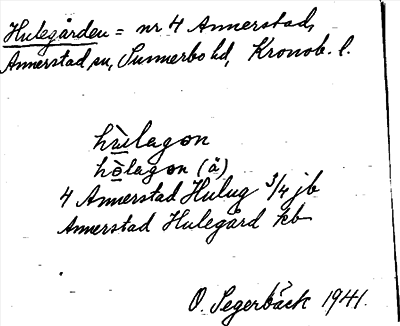 Hulegården = nr 4 Annerstad,
Annerstad sn, Sunnerbo hd, Kronob. l.
hùlagon
hòlagon (ä)
4 Annerstad Hulug 3/4 jb
Annerstad Hulegård kb
O. Segerbäck 1941.